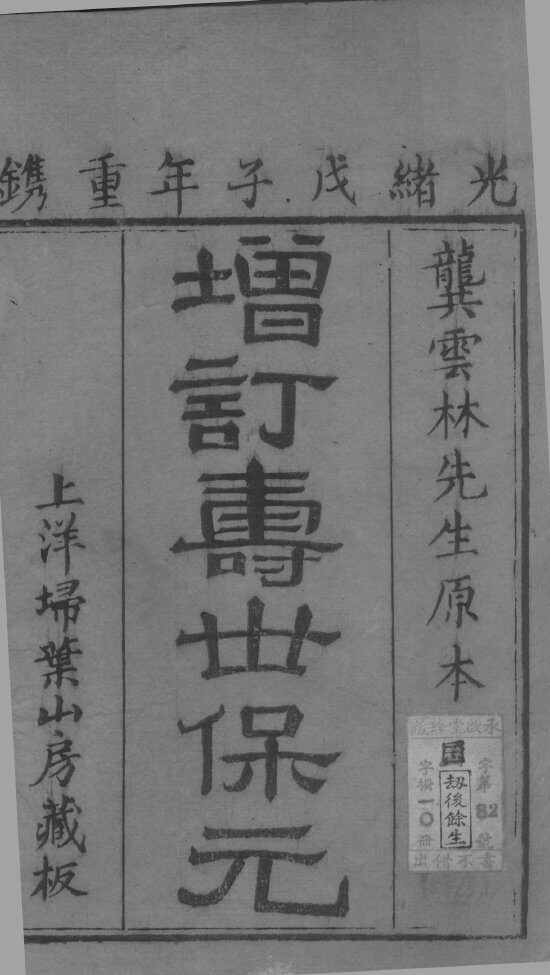 光緒戊子年重鐫
龔雲林先生原本
增訂壽世保元
上洋掃葉山房藏板
國
字第82號
劫後餘生
字櫥一〇冊
書不借出